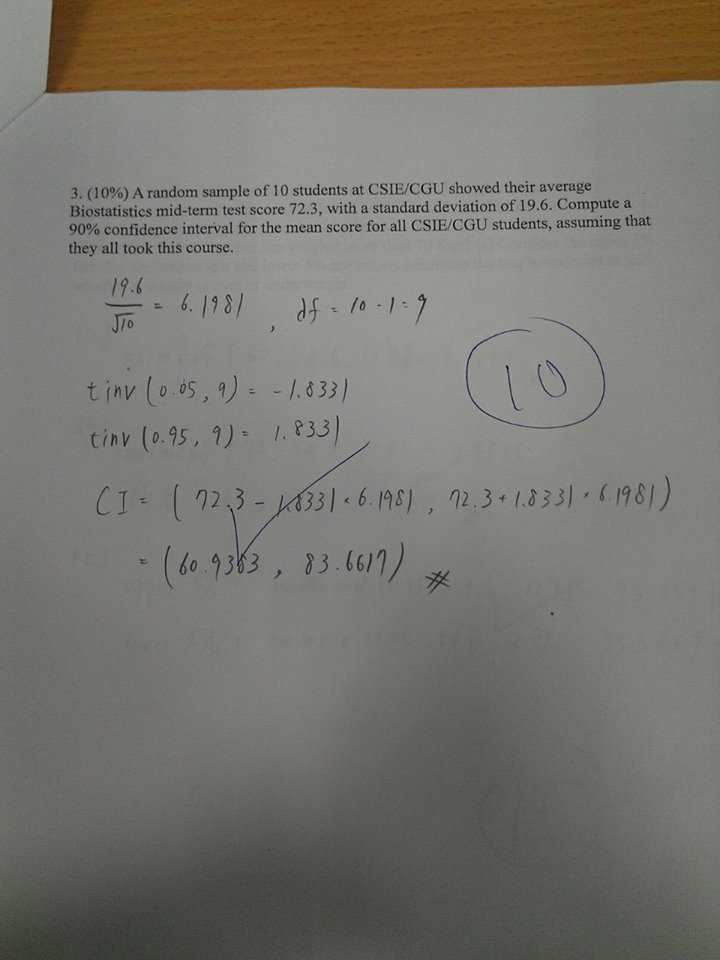 3. (10%) A random sample of 10 students at CSIE/CGU showed their average
Biostatistics mid-term test score 72.3, with a standard deviation of 19.6. Compute a
90% confidence interval for the mean score for all CSIE/CGU students, assuming that
they all took this course.
19.6/√10 = 6.1981 , df = 10 - 1 = 9
tinv (0.05, 9) = -1.8331
tinv (0.95, 9) = 1.8331
10
CI = ( 72.3 - 1.8331 × 6.1981 , 72.3 + 1.8331 × 6.1981 )
= (60.9383 , 83.6617) #